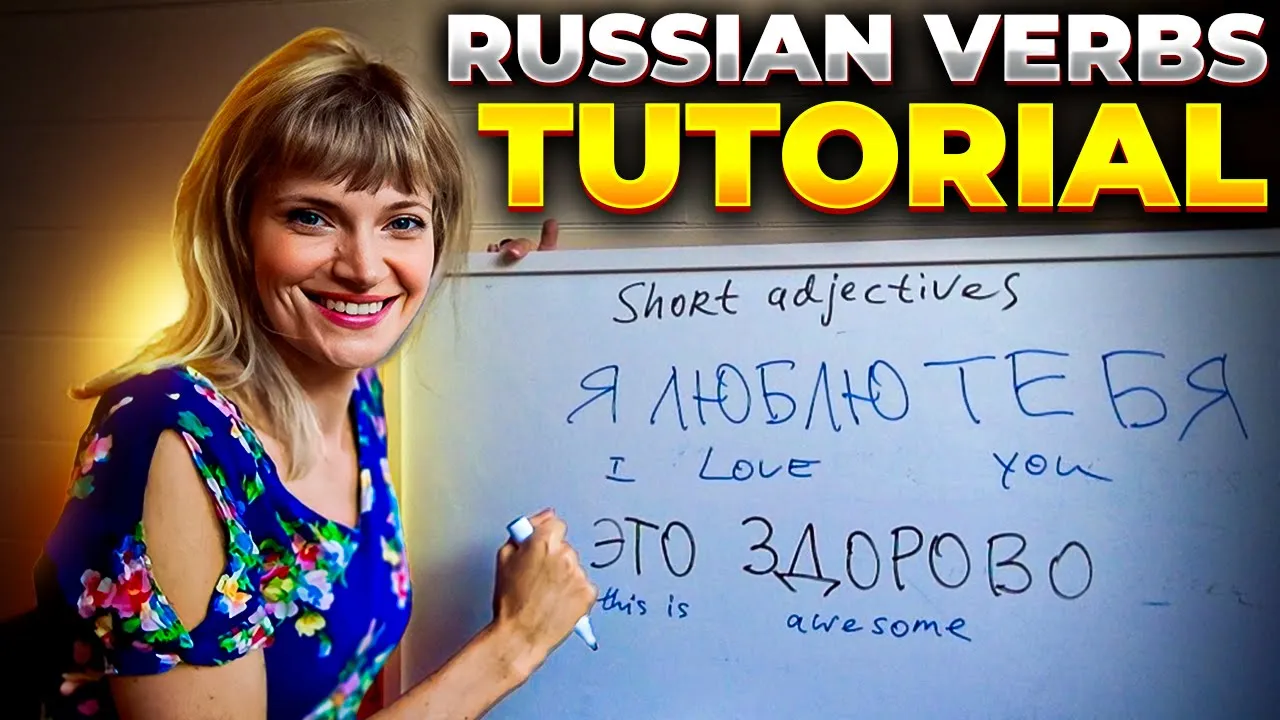 RUSSIAN VERBS
TUTORIAL
Short adjectives
Я ЛЮБЛЮ ТЕБЯ
I LOVE YOU
ЭТО ЗДОРОВО
this is awesome